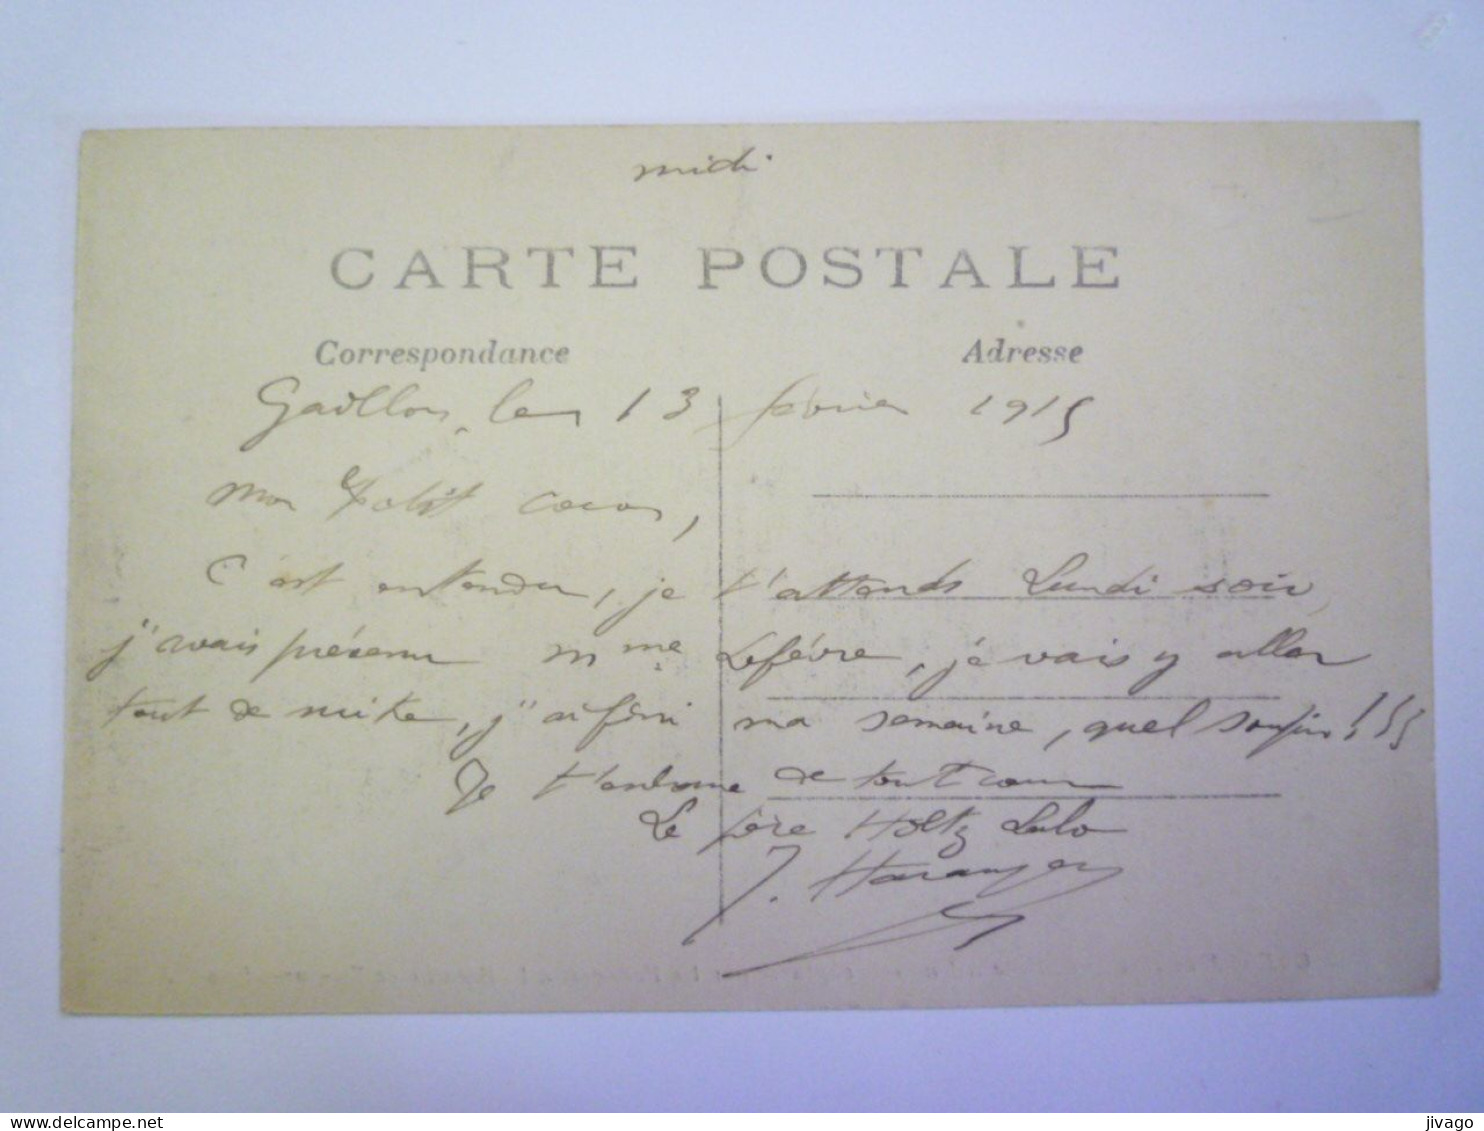 midi
CARTE POSTALE
Correspondance Adresse
Gaillon, le 13 février 1915
Mon petit coco,
C'est entendu, je t'attends Lundi soir,
j'avais prévenu Mme Lefèvre, je vais y aller
tout de suite, j'ai fini ma semaine, quel soupir!!!
Je t'embrasse de tout coeur
Le père Holtz Lulo
J. Haranger
jivago